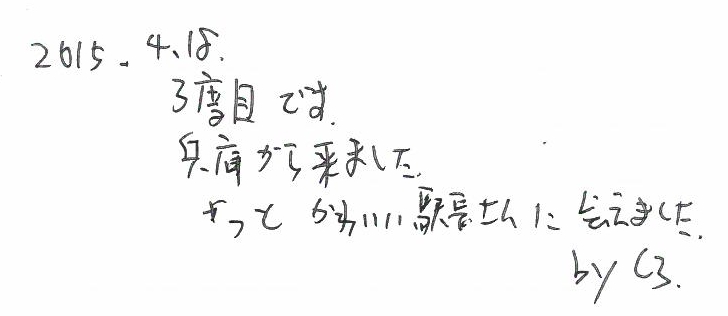 2015.4.18.
3度目です.
兵庫から来ました.
やっと かわいい駅長さんに 会えました.
by C3.